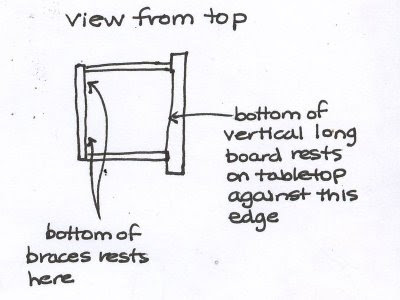 view from top
bottom of
vertical long
board rests
on tabletop
against this
edge
bottom of
braces rests
here